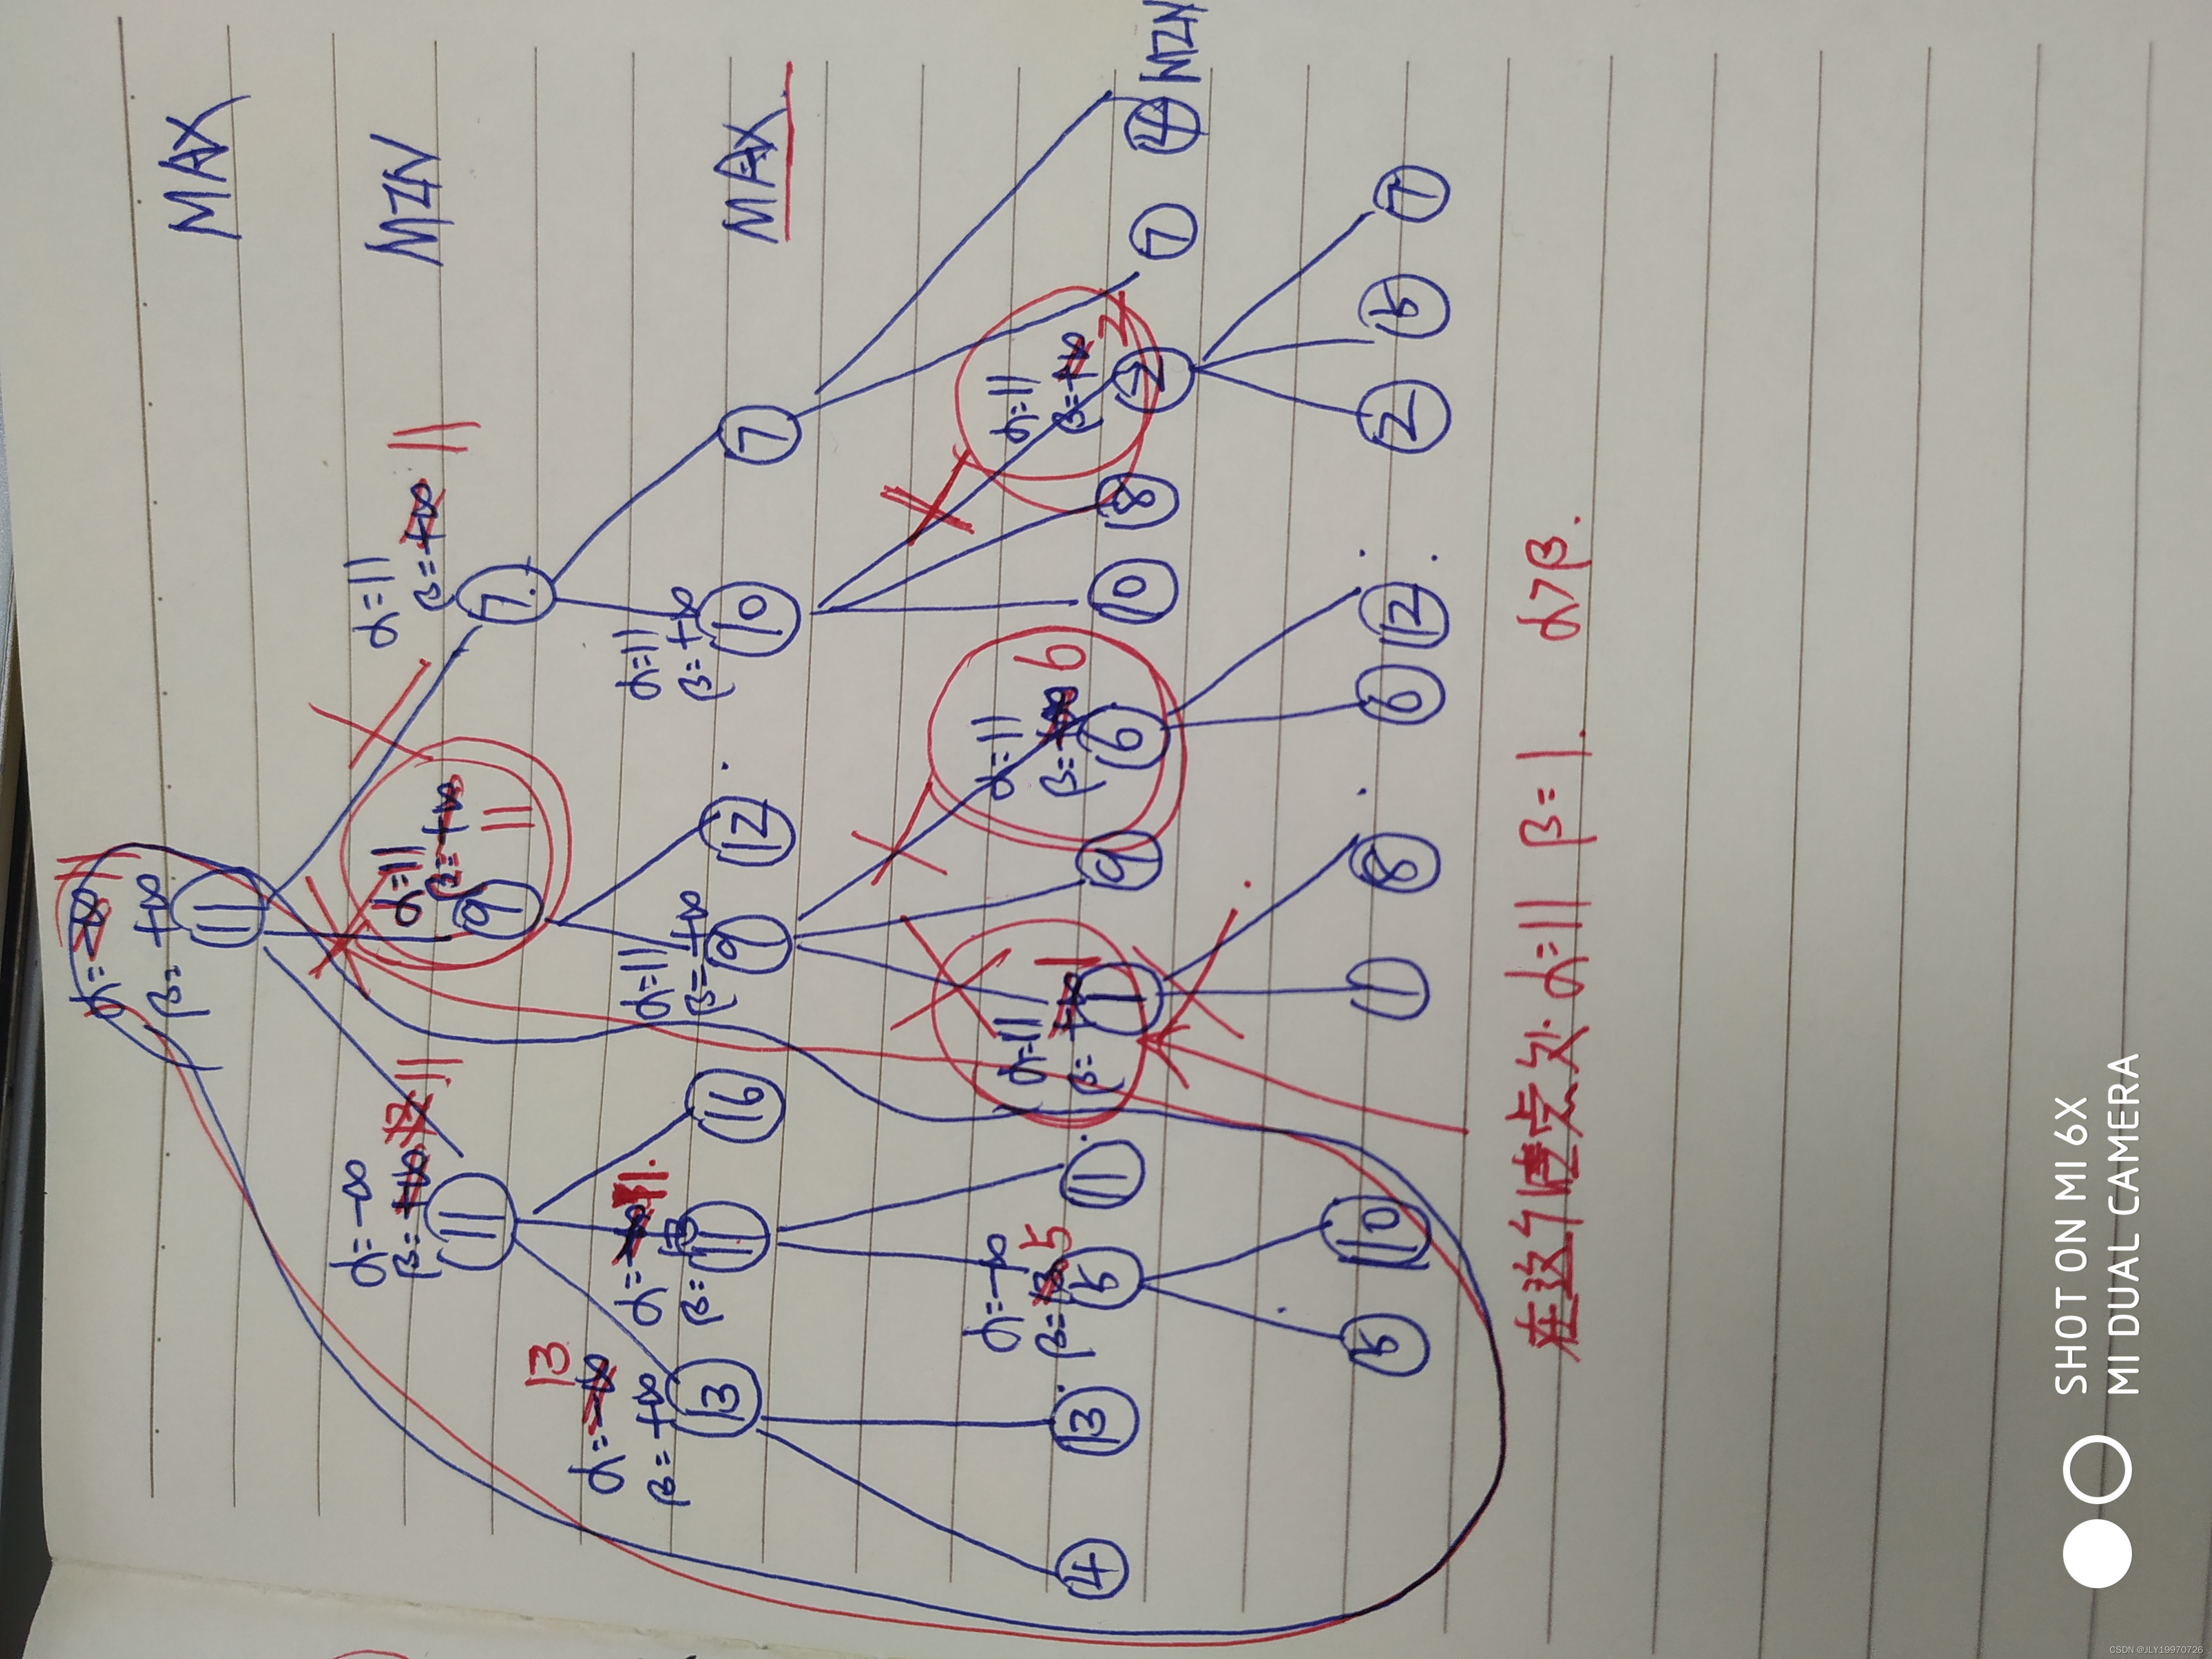 MAX
MIN
MAX
MIN
α=-∞ 11
β= +∞
11
α=-∞
β=+∞ 12 11
11
α=11
β=+∞ 11
9
α=11
β=+∞ 11
7
13
α=-∞
β=+∞
13
α=-∞ 11.
β= 13
11
16
α=11
β=+∞
9
12
α=11
β=+∞
10
7
4
13
α=-∞
β=13 5
5
11
α=11
β=+∞ 1
1
9
α=11
β=+∞ 6
6
10
8
α=11
β=+∞ 2
2
7
4
5
10
1
8
6
12
2
5
7
在这个虚点处. α=11 β=1. α>β.
SHOT ON MI 6X
MI DUAL CAMERA
CSDN @JLY19970726